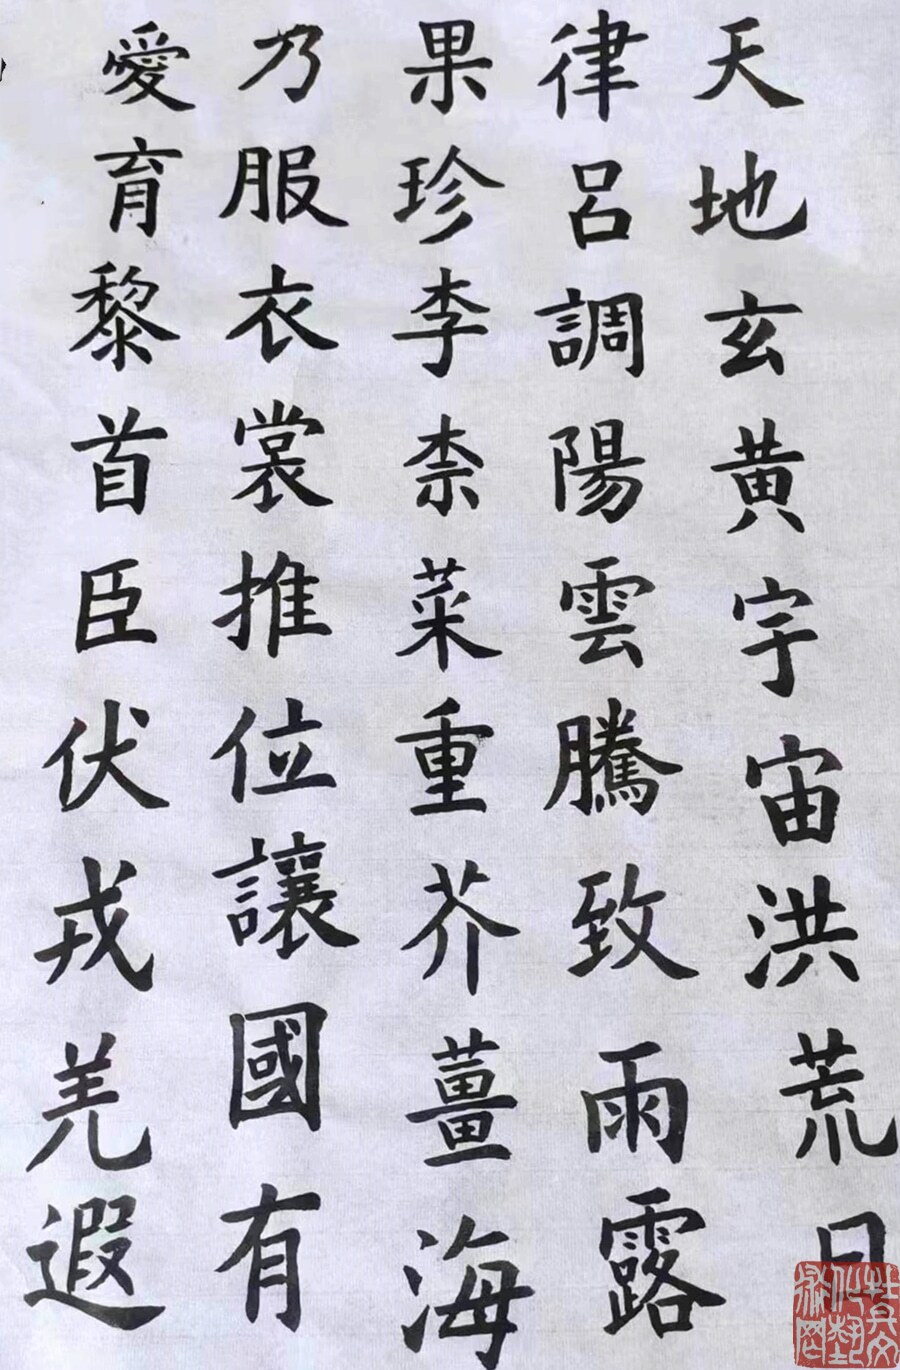 天地玄黄宇宙洪荒日
律呂調陽雲騰致雨露
果珍李柰菜重芥薑海
乃服衣裳推位讓國有
愛育黎首臣伏戎羌遐